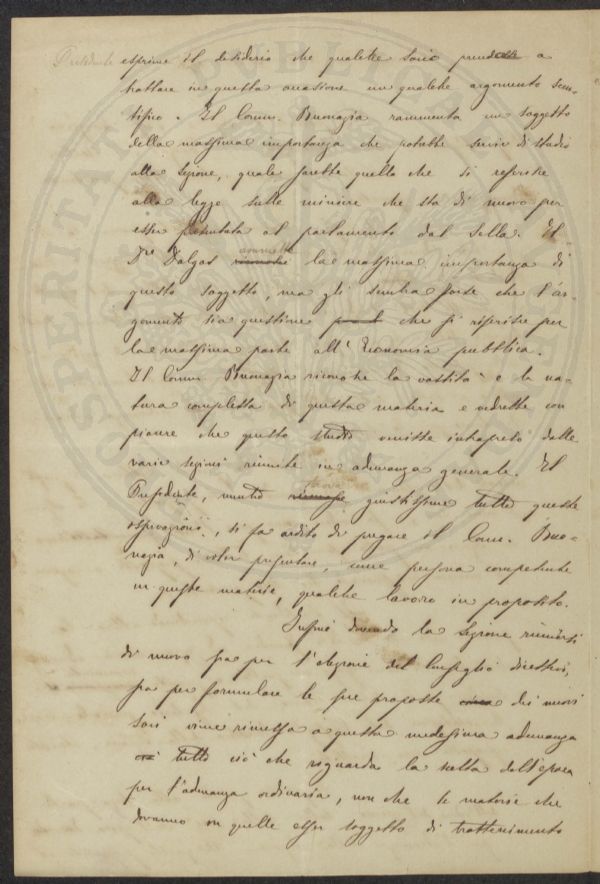 Presidente esprime il desiderio che qualche socio prendesse a
trattare in questa occasione un qualche argomento scien-
tifico. Il Comm. Buonagia rammenta un soggetto
della massima importanza che potrebbe servir di studio
alla sezione, quale sarebbe quello che si riferisce
alla legge sulle miniere che sta di nuovo per
esser presentata al parlamento dal Sella. Il
Dr. Dalgas ammette la massima importanza di
questo soggetto, ma gli sembra forse che l'ar-
gomento sia questione che si riferisce per
la massima parte all'Economia pubblica.
Il Comm. Buonagia riconosce la vastità e la na-
tura complessa di questa materia e vedrebbe con
piacere che questo studio venisse intrapreso dalle
varie sezioni riunite in adunanza generale. Il
Presidente, mentre trova giustissime tutte queste
osservazioni, si fa ardito di pregare il Comm. Buo-
nagia, di voler presentare, come persona competente
in queste materie, qualche lavoro in proposito.
Infine dovendo la Sezione riunirsi
di nuovo sia per l'elezione del Consiglio direttivo,
sia per formulare le sue proposte dei nuovi
soci viene rimessa a questa medesima adunanza
tutto ciò che riguarda la scelta dell'epoca
per l'adunanza ordinaria, non che le materie che
dovranno in quelle esser soggetto di trattenimento